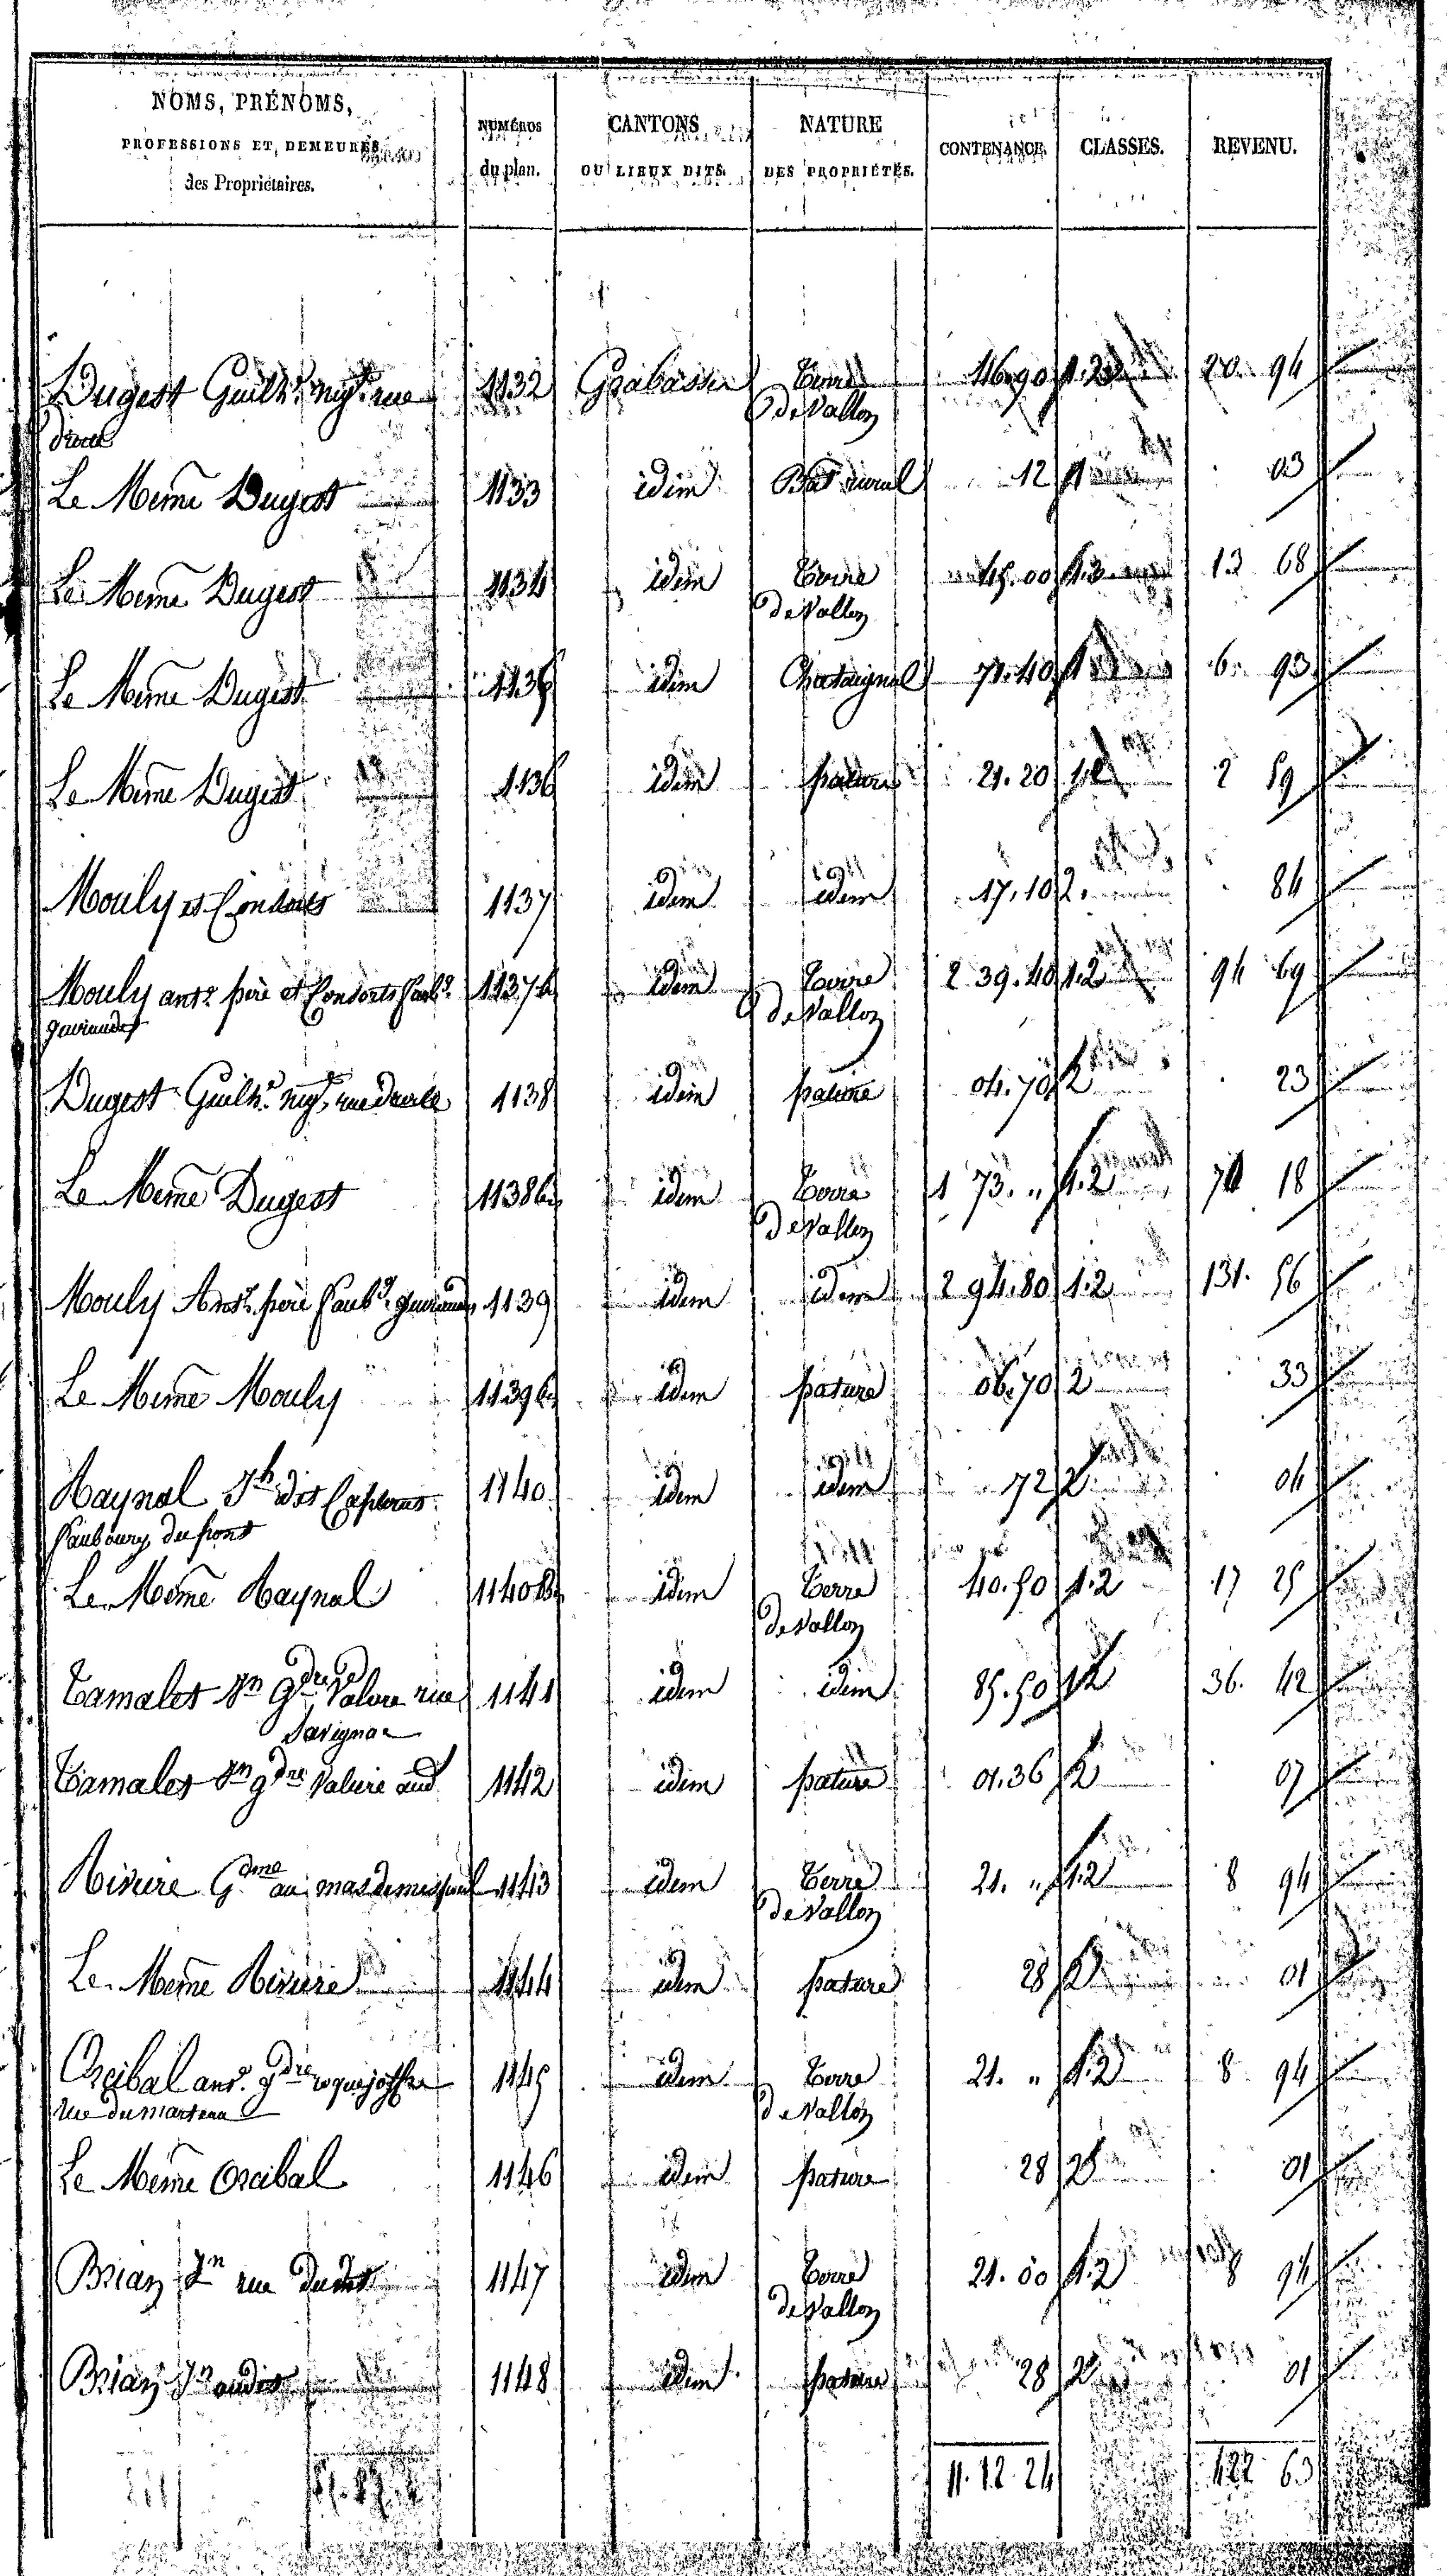 NOMS, PRÉNOMS, PROFESSIONS ET DEMEURES des Propriétaires. | NUMÉROS du plan. | CANTONS OU LIEUX DITS. | NATURE DES PROPRIÉTÉS. | CONTENANCE. | CLASSES. | REVENU.
Dugest Guilh.e neg.t rue | 1132 | Grabassie | Terre | 46.90 | 1.2 | 20. 94
droite | de Vallon
Le Meme Dugest | 1133 | idem | Bat rural | 12 | 1 | 03
Le Meme Dugest | 1134 | idem | Terre | 45.00 | 1.3 | 13 68
de Vallon
Le Meme Dugest | 1135 | idem | Chataignal | 71.40 | 1 | 6. 93
Le Meme Dugest | 1136 | idem | pature | 21.20 | 1.2 | 2 59
Mouly et Consorts | 1137 | idem | idem | 17.10 | 2. | 84
Mouly ant.e père et Consorts faub.g | 1137 b | idem | Terre | 2 39.40 | 1.2 | 94 69
guiraudet | de Vallon
Dugest Guilh.e neg.t rue droite | 1138 | idem | pature | 04.70 | 2 | 23
Le Meme Dugest | 1138 bis | idem | Terre | 1 73. " | 1.2 | 71 18
de Vallon
Mouly Ant.e père faub.g | 1139 | idem | idem | 2 94.80 | 1.2 | 131. 56
Le Meme Mouly | 1139 bis | idem | pature | 06.70 | 2 | 33
Raynal Jh dit Faubourg du pont | 1140 | idem | idem | 72 | 2 | 04
Le Meme Raynal | 1140 Bis | idem | Terre | 40.50 | 1.2 | 17 25
de Vallon
Tamalet Jn gdre Valere rue | 1141 | idem | idem | 85.50 | 1.2 | 36. 42
Savignac
Tamalet Jn gdre Valere aud | 1142 | idem | pature | 01.36 | 2 | 07
Riviere Gme au mas de | 1143 | idem | Terre | 21. " | 1.2 | 8 94
de Vallon
Le Meme Riviere | 1144 | idem | pature | 28 | 2 | 01
Orcibal ant. gdre roquejoffre | 1145 | idem | Terre | 21. " | 1.2 | 8 94
rue du marteau | de Vallon
Le Meme Orcibal | 1146 | idem | pature | 28 | 2 | 01
Brian Jn rue | 1147 | idem | Terre | 21.00 | 1.2 | 8 94
de Vallon
Brian Jn audit | 1148 | idem | pature | 28 | 2 | 01
11.12.24 | 422 63